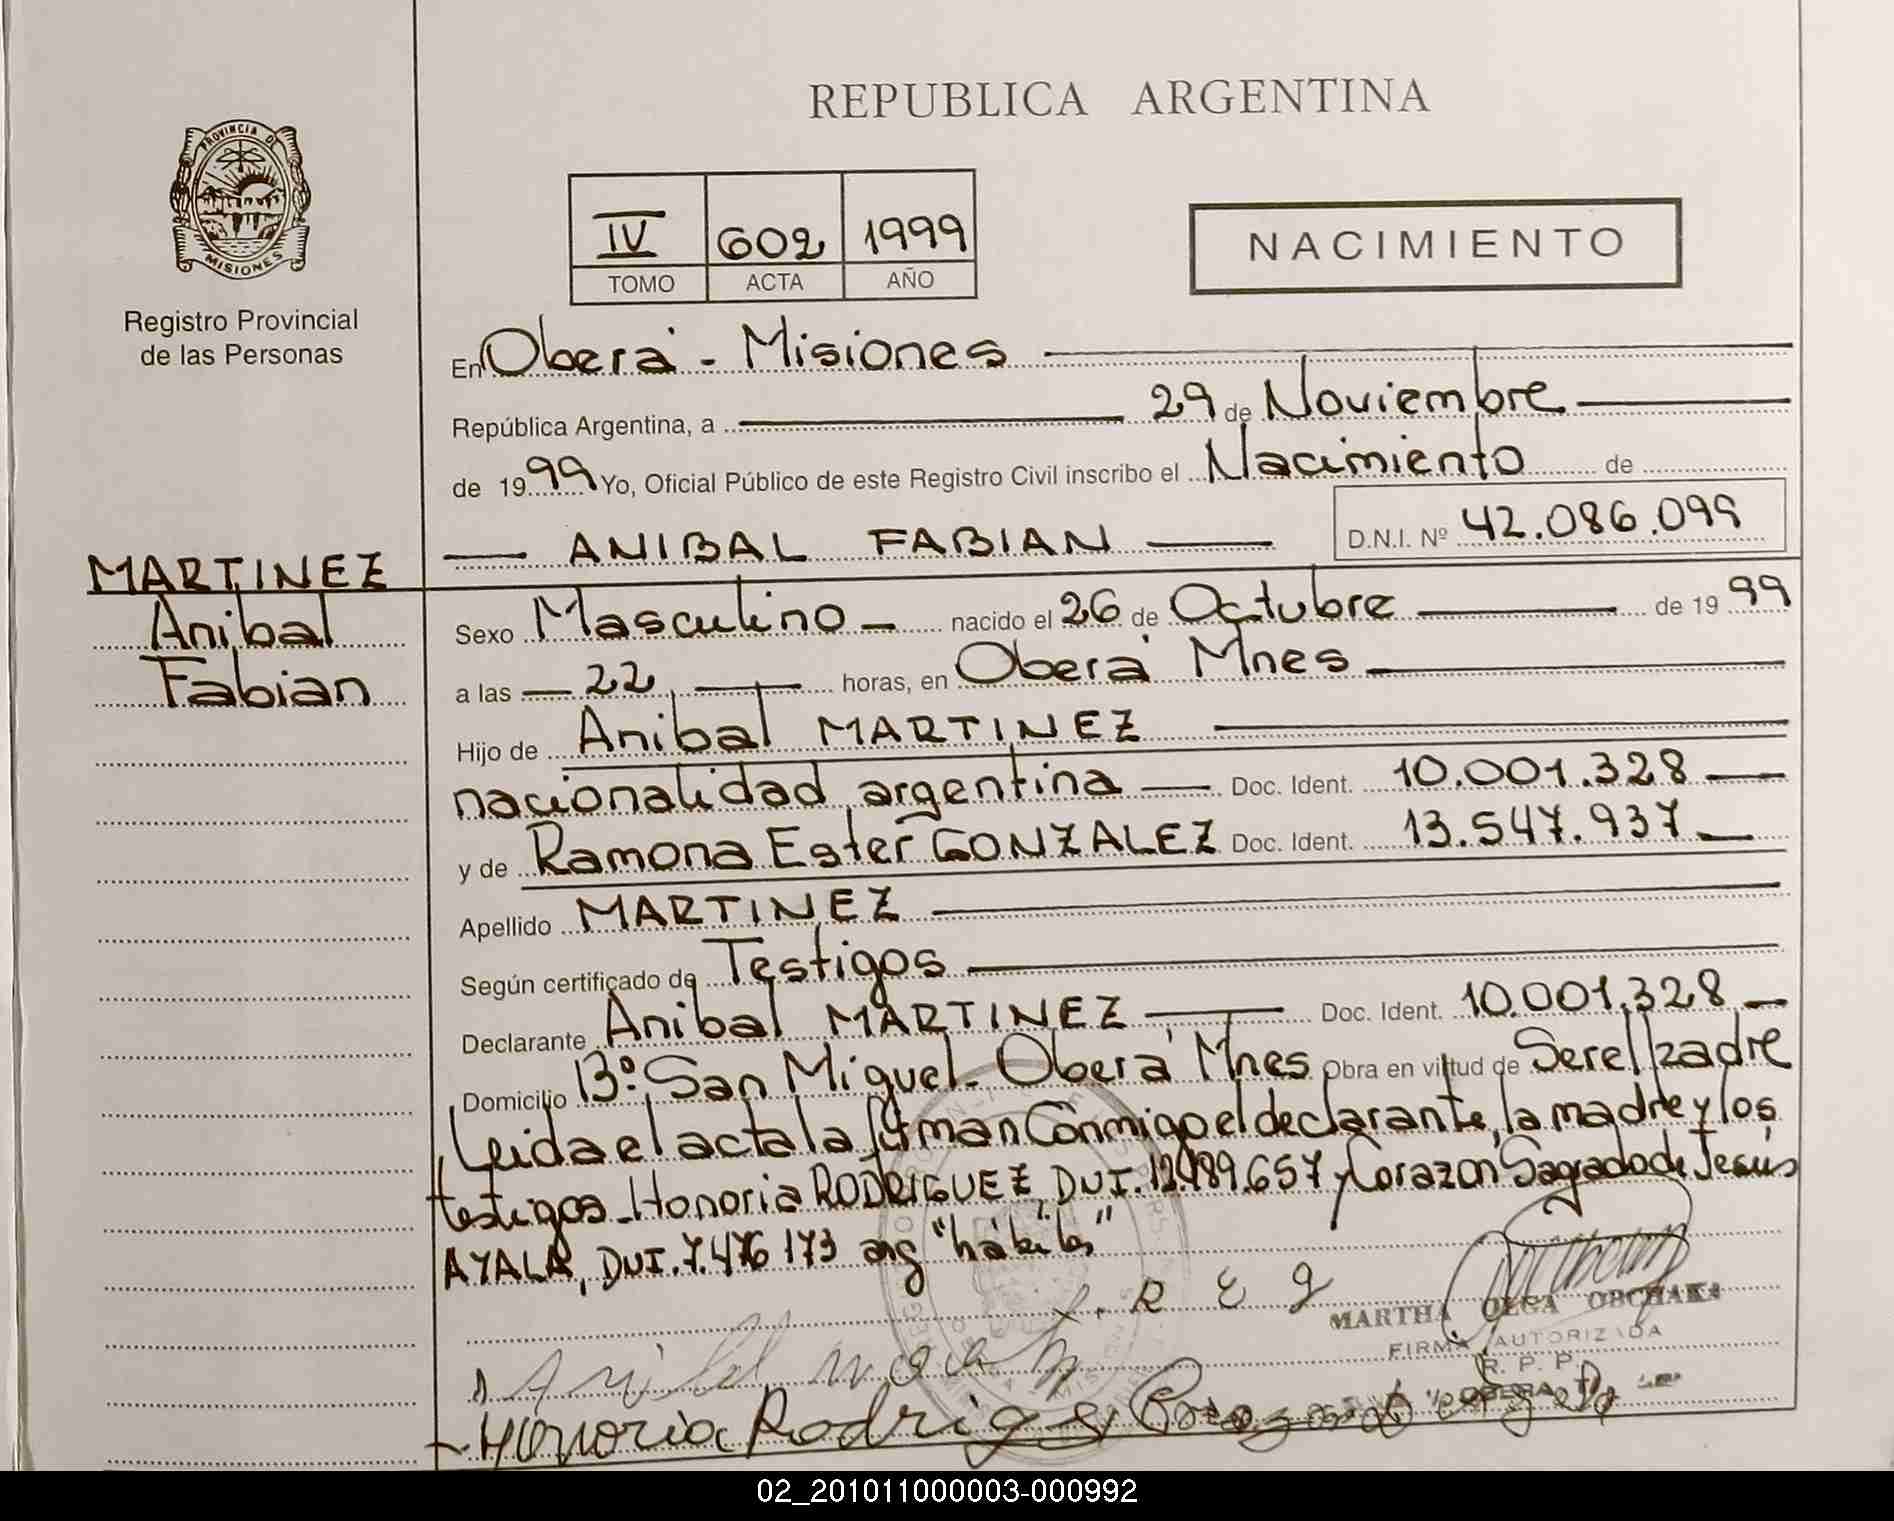 REPUBLICA ARGENTINA
PROVINCIA DE
MISIONES
Registro Provincial
de las Personas
IV 602 1999
TOMO ACTA AÑO
NACIMIENTO
En Oberá - Misiones
República Argentina, a 29 de Noviembre
de 1999 Yo, Oficial Público de este Registro Civil inscribo el Nacimiento de
ANIBAL FABIAN D.N.I. Nº 42.086.099
MARTINEZ
Anibal
Fabian
Sexo Masculino nacido el 26 de Octubre de 1999
a las 22 horas, en Oberá Mnes
Hijo de Anibal MARTINEZ
nacionalidad argentina Doc. Ident. 10.001.328
y de Ramona Ester GONZALEZ Doc. Ident. 13.547.937
Apellido MARTINEZ
Según certificado de Testigos
Declarante Anibal MARTINEZ Doc. Ident. 10.001.328
Domicilio Bº San Miguel - Oberá Mnes Obra en virtud de Ser el padre
Leida el acta la firman Conmigo el declarante, la madre y los
testigos - Honoria RODRIGUEZ, DNI. 12.489.657 y Corazon Sagrado de Jesús
AYALA, DNI. 7.476 173 arg "hábiles"
R E g
MARTHA OLGA OBCHAKA
FIRMA AUTORIZADA
R. P. P.
OBERA
Honoria Rodrig
02_201011000003-000992